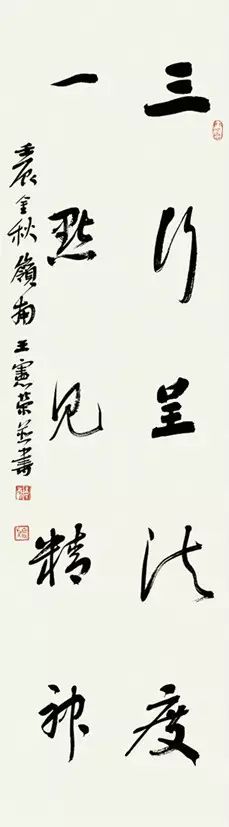 三行呈法度
一點见精神
壬辰金秋嶺南王憲荣並書